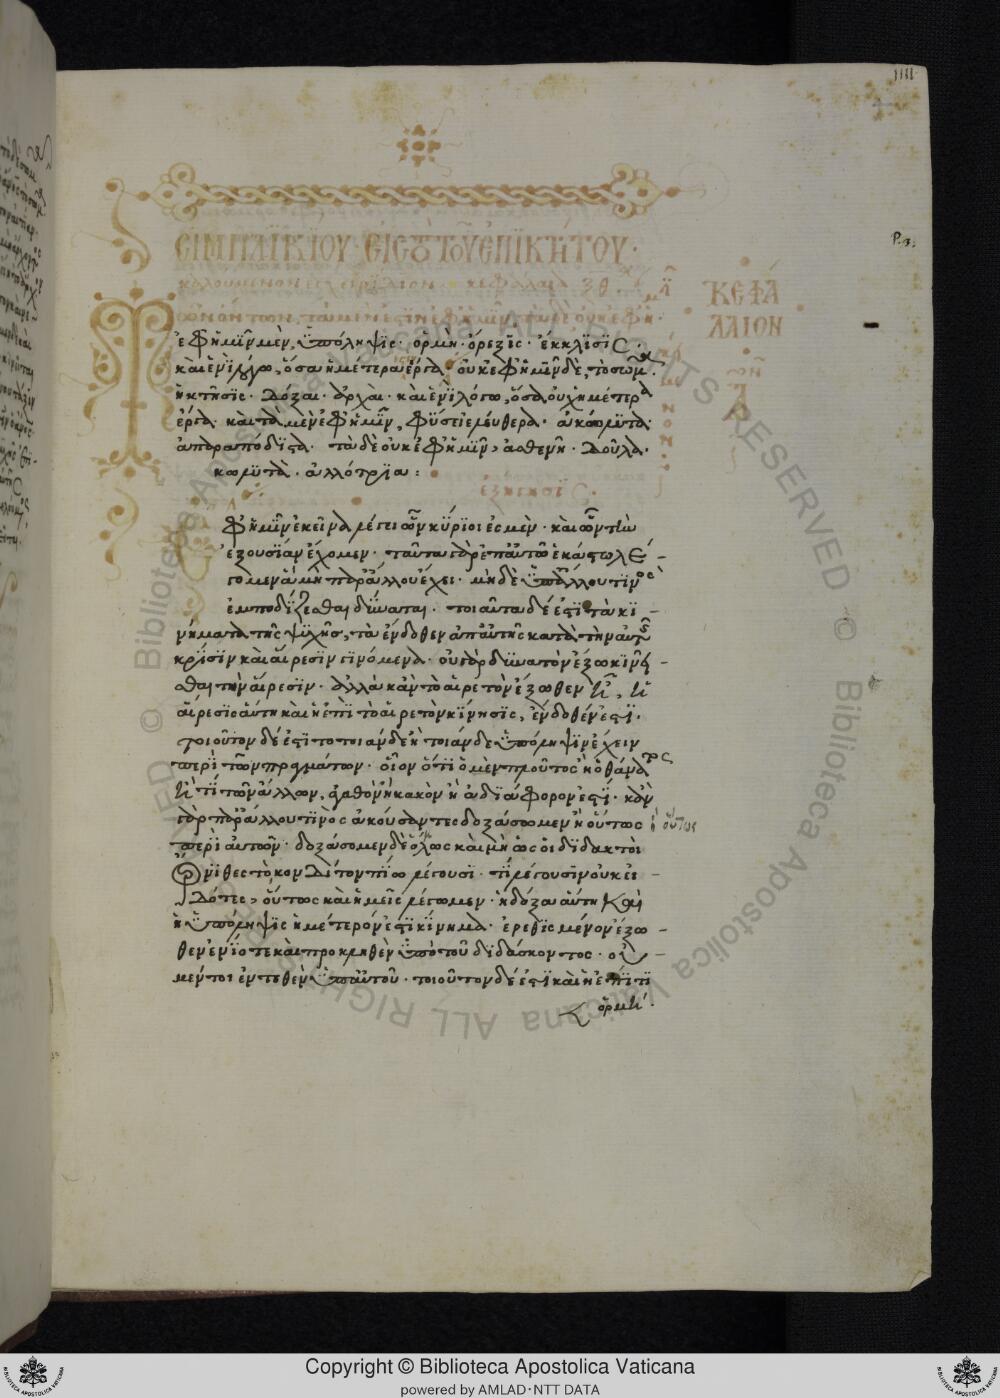 ΣΙΜΠΛΙΚΙΟΥ ΕΙΣ ΤΟΥ ΕΠΙΚΤΗΤΟΥ·
καλούμενον ἐγχειρίδιον κεφάλαια
ΚΕΦΑ
ΛΑΙΟΝ
Α
ἐφ' ἡμῖν μὲν, ὑπόληψις· ὁρμὴ· ὄρεξις· ἔκκλισις·
καὶ ἑνὶ λόγω, ὅσα ἡμέτερα ἔργα· οὐκ ἐφ' ἡμῖν δὲ, τὸ σῶμα·
ἡ κτῆσις· δόξαι· ἀρχαὶ· καὶ ἑνὶ λόγω, ὅσα οὐχ ἡμέτερα
ἔργα· καὶ τὰ μὲν ἐφ' ἡμῖν, φύσει ἐλεύθερα· ἀκώλυτα·
ἀπαραπόδιστα· τὰ δὲ οὐκ ἐφ' ἡμῖν, ἀσθενῆ· δοῦλα·
κωλυτὰ· ἀλλότρια:
ἐξήγησις·
Ἐφ' ἡμῖν ἐκεῖνα λέγει ὧν κύριοι ἐσμὲν· καὶ ὧν τὴν
ἐξουσίαν ἔχομεν· ταῦτα γὰρ ἐπ' αὐτῶ ἕκαστος λέ-
γομεν ἃ μὴ παρ' ἄλλου ἔχει· μηδὲ ὑπ' ἄλλου τινὸς
ἐμποδίζεσθαι δύναται· τοιαῦτα δέ ἐστι τὰ κι-
νήματα τῆς ψυχῆς, τὰ ἔνδοθεν ἀπ' αὐτῆς κατὰ τὴν αὐτῆς
κρίσιν καὶ αἵρεσιν γινόμενα· οὐ γὰρ δύνατὸν ἔξω κινεῖ-
σθαι τὴν αἵρεσιν· ἀλλὰ κἂν τὸ αἱρετὸν ἔξωθεν ᾖ, ἡ
αἵρεσις αὐτὴ καὶ ἡ ἐπὶ τὸ αἱρετὸν κίνησις, ἔνδοθέν ἐστι·
τοιοῦτον δέ ἐστι τὸ τοιάνδε ἢ τοιάνδε ὑπόληψιν ἔχειν
περὶ τῶν πραγμάτων· οἷον ὅτι ὁ μὲν πλοῦτος ἢ ὁ θάνατος
ἤ τι τῶν ἄλλων, ἀγαθὸν ἢ κακὸν ἢ ἀδιάφορον ἐστί· κἂν
γὰρ παρ' ἄλλου τινὸς ἀκούσαντες δοξάσωμεν ἢ οὕτως ἢ οὕτως
περὶ αὐτῶν· δοξάσομεν δὲ ὅλως καὶ μὴ ὡς οἱ διδακτοὶ
ὄρνιθες τὸ κονδίτον πίω λέγουσι· τί λέγουσιν οὐκ εἰ-
δότες, οὕτως καὶ ἡμεῖς λέγωμεν· ἡ δόξα αὕτη καὶ
ἡ ὑπόληψις ἡμέτερόν ἐστι κίνημα· ἐρεθισμένον ἔξω-
θεν ἐνίοτε καὶ προκληθὲν ὑπὸ τοῦ διδάσκοντος· οὐ
μέντοι ἐντεθὲν ὑπ' αὐτοῦ· τοιοῦτον δέ ἐστι καὶ ἡ ἐπί τι
ὁρμή·
Copyright © Biblioteca Apostolica Vaticana
powered by AMLAD·NTT DATA